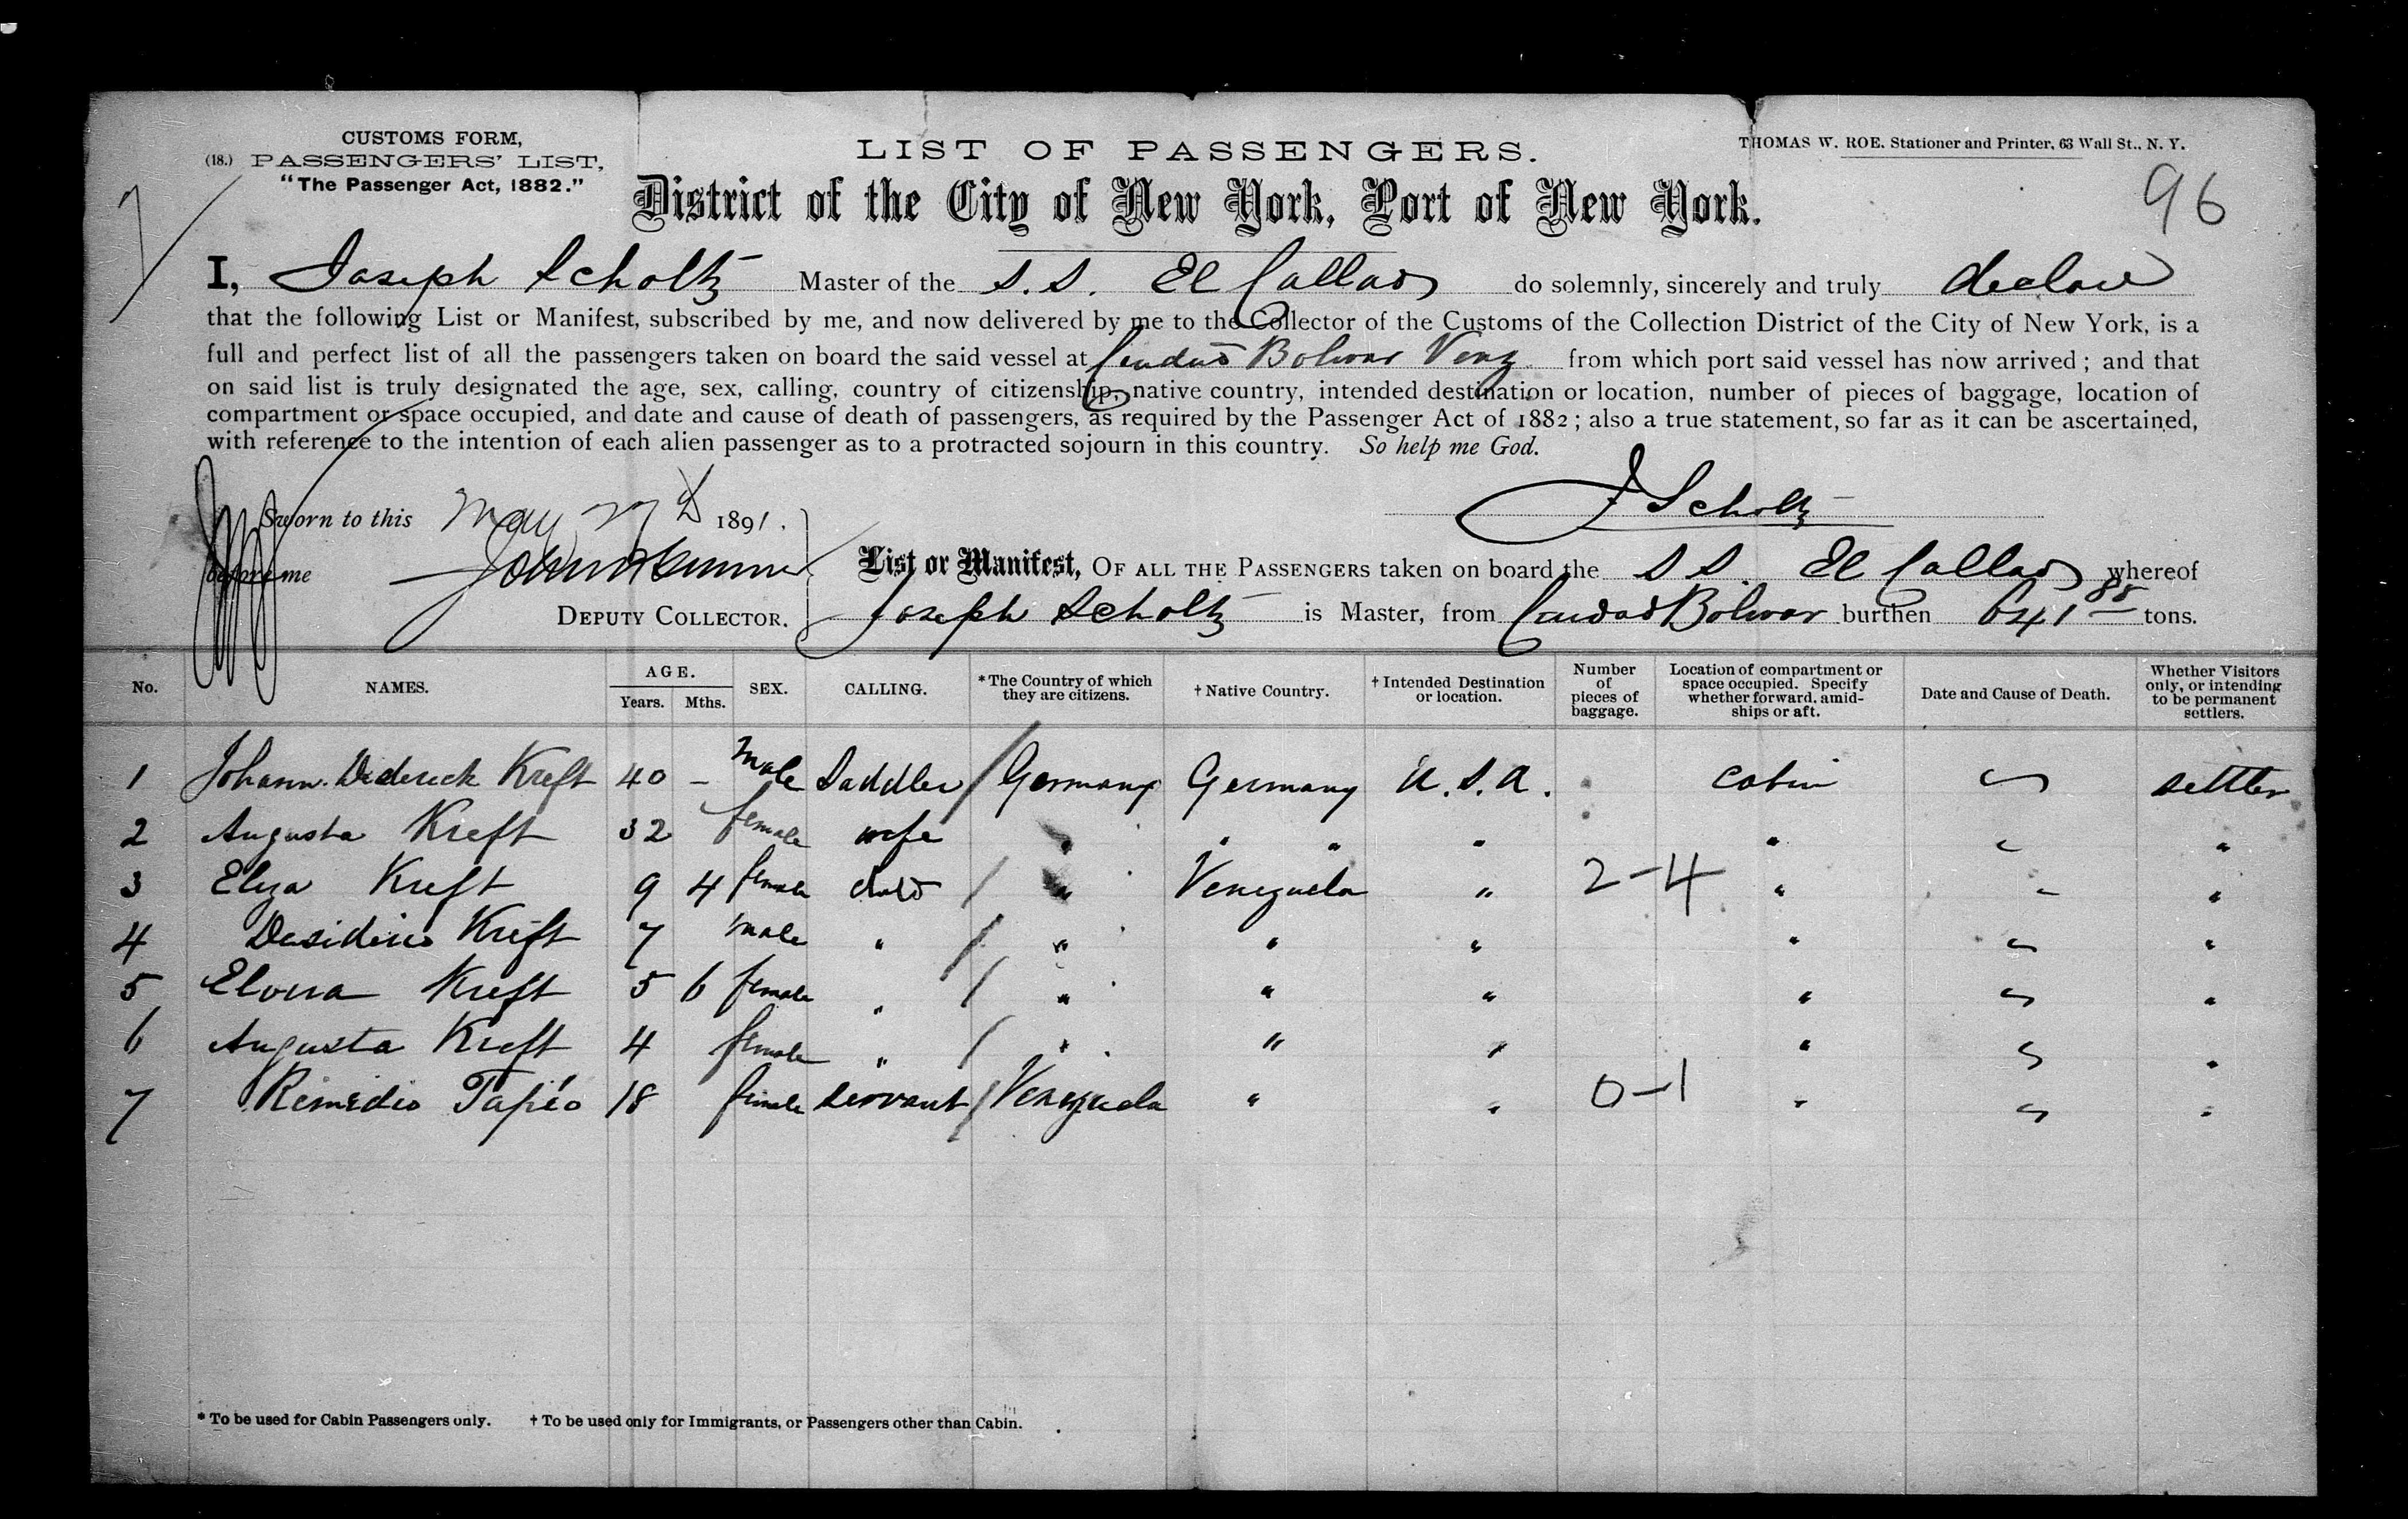 CUSTOMS FORM,
(18.) PASSENGERS' LIST,
"The Passenger Act, 1882."
LIST OF PASSENGERS.
THOMAS W. ROE, Stationer and Printer, 63 Wall St., N. Y.
District of the City of New York, Port of New York.
96
7
I, Joseph Scholtz Master of the S.S. El Callao do solemnly, sincerely and truly declare
that the following List or Manifest, subscribed by me, and now delivered by me to the Collector of the Customs of the Collection District of the City of New York, is a
full and perfect list of all the passengers taken on board the said vessel at Ciudad Bolivar Venz from which port said vessel has now arrived; and that
on said list is truly designated the age, sex, calling, country of citizenship, native country, intended destination or location, number of pieces of baggage, location of
compartment or space occupied, and date and cause of death of passengers, as required by the Passenger Act of 1882; also a true statement, so far as it can be ascertained,
with reference to the intention of each alien passenger as to a protracted sojourn in this country. So help me God.
J Scholtz
Sworn to this May 1891.
before me
DEPUTY COLLECTOR.
List or Manifest, OF ALL THE PASSENGERS taken on board the S S. El Callao whereof
Joseph Scholtz is Master, from Ciudad Bolivar burthen 641 88 tons.
No. NAMES. AGE. Years. Mths. SEX. CALLING. *The Country of which they are citizens. †Native Country. †Intended Destination or location. Number of pieces of baggage. Location of compartment or space occupied. Specify whether forward, amidships or aft. Date and Cause of Death. Whether Visitors only, or intending to be permanent settlers.
1 Johann Diderick Kreft 40 - male Saddler / Germany Germany U.S.A. cabin settler
2 Augusta Kreft 32 female wife " " " " " "
3 Eliza Kreft 9 4 female child / " Venezuela " 2-4 " - "
4 Desiderio Kreft 7 male " / " " " " "
5 Elvira Kreft 5 6 female " / " " " " "
6 Augusta Kreft 4 female " / " " " " "
7 Remedio Tapio 18 female servant / Venezuela " " 0-1 " "
* To be used for Cabin Passengers only. † To be used only for Immigrants, or Passengers other than Cabin.